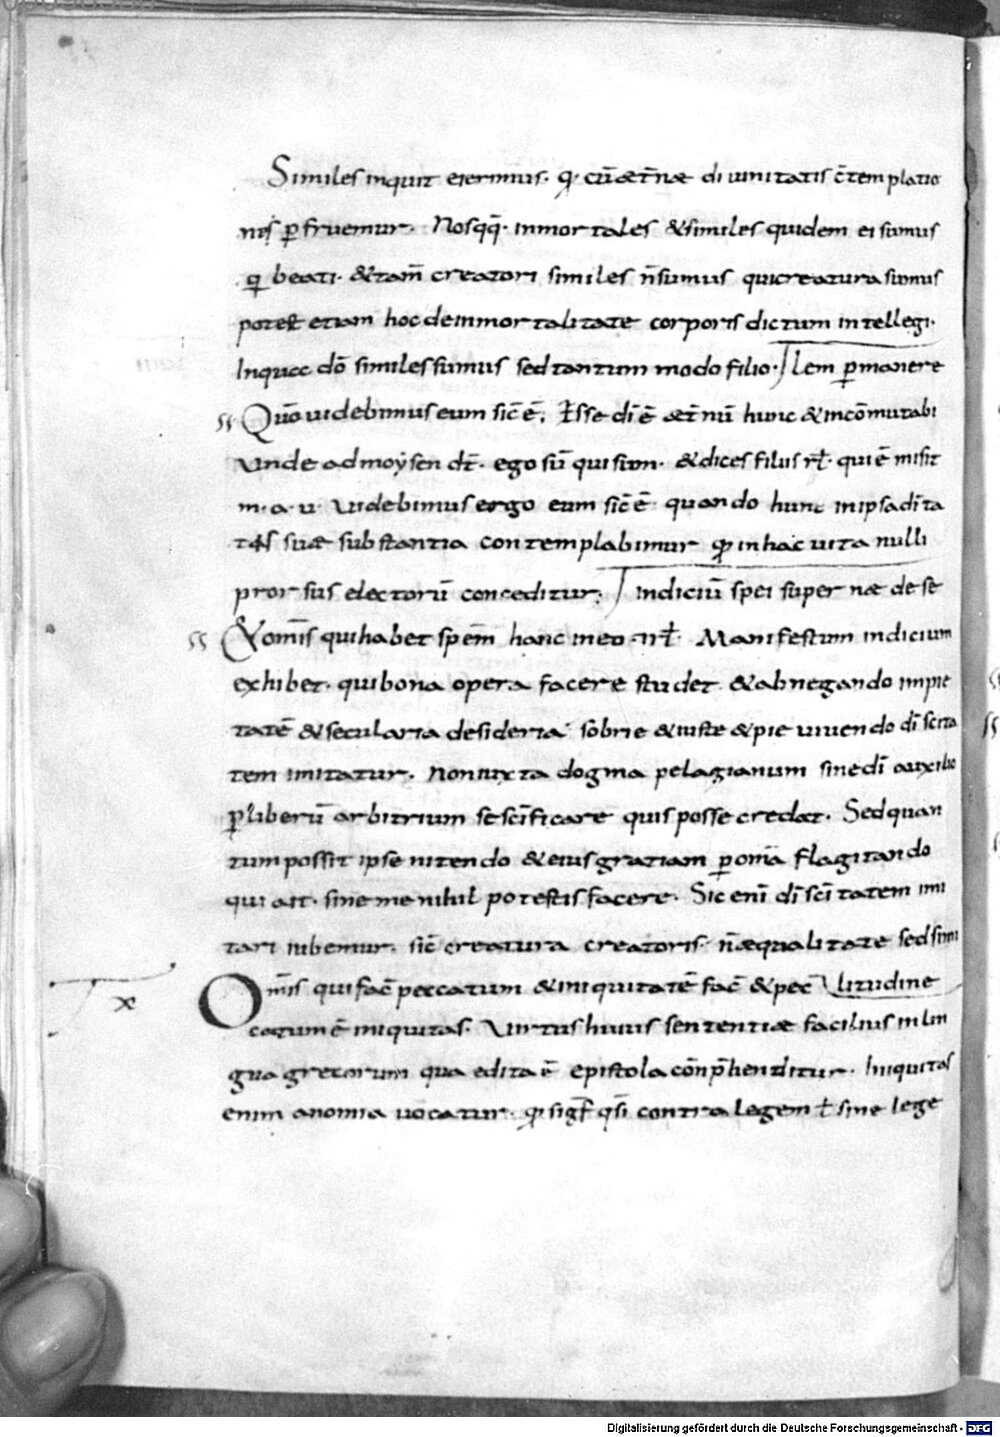 Similes inquit ei erimus. q̄. cū æt̄næ diuinitatis c̄templatio
nis ꝑfruemur. Nosqq̄. inmortales & similes quidem ei sumus
q̄ beati. & tam̄ creatori similes n̄ sumus qui creatura sumus
potest etiam hoc de inmortalitate corporis dictum intellegi.
In qua dō similes sumus sed tantum modo filio. / lem ꝑmanere
Quō uidebimus eum sic̄ ē. Esse dī ē æt̄nū hunc & incōmutabi
Vnde ad moysen dt̄. ego sū qui sum. & dices filiis irl̄. qui ē misit
m. a. u. Videbimus ergo eum sic̄ ē quando hunc in ipsa dīta
tis suæ substantia contemplabimur q̄ in hac uita nulli
prorsus electorū conceditur. / indiciū spei supernæ de se
& om̄is qui habet spem̄ hanc in eo Manifestum indicium
exhibet. qui bona opera facere studet & abnegando impie
tatē & secularia desideria sobrie & iuste & pie uiuendo dī scita
tem imitatur. Non iuxta dogma pelagianum sine dī auxilio
ꝑ liberū arbitrium se scīficare quis posse credat. Sed quan
tum possit ipse nitendo & eius gratiam ꝑ omīa flagitando
qui ait. sine me nihil potestis facere. Sic enī dī scītatem imi
tari iubemur. sic̄ creatura creatoris. n̄ æqualitate sed simi
Om̄is qui fac̄ peccatum & iniquitatē fac̄ & pec̄ \ litudine
x
catum ē iniquitas. Virtus huius sententiæ facilius in lin
gua grecorum qua edita ē epistola cōnp̄henditur. Iniquitas
enim anomia uocatur. q̄ sigf̄ qsī contra legem ł sine lege
Digitalisierung gefördert durch die Deutsche Forschungsgemeinschaft - DFG